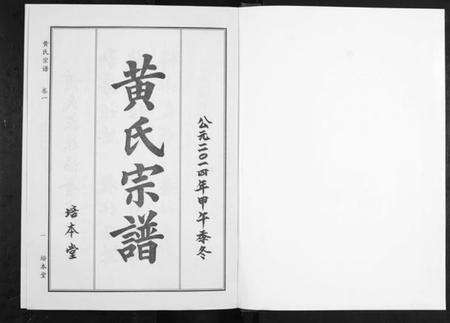 公元二〇一四年甲午季冬
黄氏宗譜
培本堂
黄氏宗譜 卷一
一 培本堂